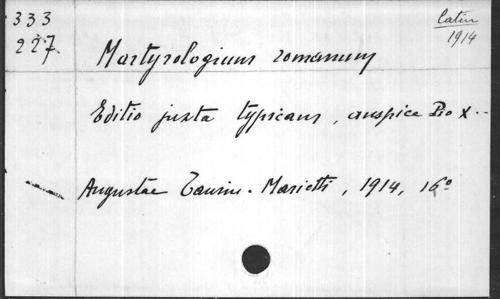 333
227.
Latin
1914
Martyrologium romanum
Editio juxta typicam, auspice Pio X..
Augustae Taurin. Marietti, 1914, 16°